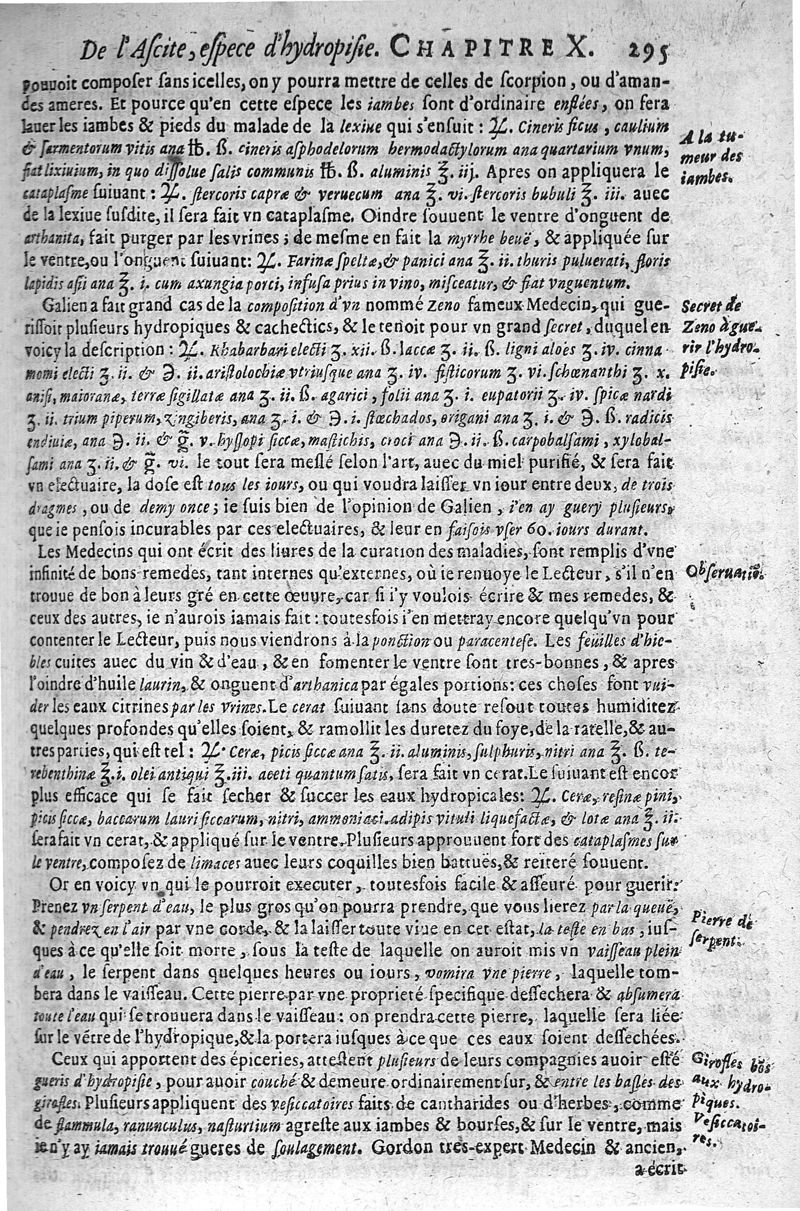 De l'Aſcite, eſpece d'hydropiſie. CHAPITRE X. 295
pouuoit compoſer ſans icelles, on y pourra mettre de celles de ſcorpion, ou d'aman-
des ameres. Et pource qu'en cette eſpece les iambes ſont d'ordinaire enflées, on fera
lauer les iambes & pieds du malade de la lexiue qui s'enſuit : ♃. Cineris ficus, caulium
& ſarmentorum vitis ana ℔. ß. cineris aſphodelorum hermodactylorum ana quartarium vnum,
fiat lixiuium, in quo diſſolue ſalis communis ℔. ß. aluminis ℥. iij. Apres on appliquera le
cataplaſme ſuiuant : ♃. ſtercoris capræ & veruecum ana ℥. vi. ſtercoris bubuli ℥. iii. auec
de la lexiue ſuſdite, il ſera fait vn cataplaſme. Oindre ſouuent le ventre d'onguent de
arthanita, fait purger par les vrines ; de meſme en fait la myrrhe beuë, & appliquée ſur
le ventre, ou l'onguent ſuiuant : ♃. Farinæ ſpeltæ, & panici ana ℥. ii. thuris puluerati, floris
lapidis aſii ana ℥. i. cum axungia porci, infuſa prius in vino, miſceatur, & fiat vnguentum.
A la tu-
meur des
iambes.
Galien a fait grand cas de la compoſition d'vn nommé Zeno fameux Medecin, qui gue-
riſſoit pluſieurs hydropiques & cachectics, & le tenoit pour vn grand ſecret, duquel en
voicy la deſcription : ♃. Rhabarbari electi ʒ. xii. ß. laccæ ʒ. ii. ß. ligni aloës ʒ. iv. cinna
momi electi ʒ. ii. & ℈. ii. ariſtolochiæ vtriuſque ana ʒ. iv. fiſticorum ʒ. vi. ſchœnanthi ʒ. x.
aniſi, maioranæ, terræ ſigillatæ ana ʒ. ii. ß. agarici, folii ana ʒ. i. eupatorii ʒ. iv. ſpicæ nardi
ʒ. ii. trium piperum, zingiberis, ana ʒ. i. & ℈. i. ſtœchados, origani ana ʒ. i. & ℈. ß. radicis
endiuiæ, ana ℈. ii. & g̃. v. hyſſopi ſiccæ, maſtichis, croci ana ℈. ii. ß. carpobalſami, xylobal-
ſami ana ʒ. ii. & g̃. vi. le tout ſera meſlé ſelon l'art, auec du miel purifié, & ſera fait
vn electuaire, la doſe eſt tous les iours, ou qui voudra laiſſer vn iour entre deux, de trois
dragmes, ou de demy once ; ie ſuis bien de l'opinion de Galien, i'en ay guery pluſieurs,
que ie penſois incurables par ces electuaires, & leur en faiſois vſer 60. iours durant.
Secret de
Zeno à gue-
rir l'hydro-
piſie.
Les Medecins qui ont écrit des liures de la curation des maladies, ſont remplis d'vne
infinité de bons remedes, tant internes qu'externes, où ie renuoye le Lecteur, s'il n'en
trouue de bon à leurs gré en cette œuure, car ſi i'y voulois écrire & mes remedes, &
ceux des autres, ie n'aurois iamais fait : toutesfois i'en mettray encore quelqu'vn pour
contenter le Lecteur, puis nous viendrons à la ponction ou paracenteſe. Les feüilles d'hie-
bles cuites auec du vin & d'eau, & en fomenter le ventre ſont tres-bonnes, & apres
l'oindre d'huile laurin, & onguent d'arthanica par égales portions: ces choſes font vui-
der les eaux citrines par les vrines. Le cerat ſuiuant ſans doute reſout toutes humiditez
quelques profondes qu'elles ſoient, & ramollit les duretez du foye, de la ratelle, & au-
tres parties, qui eſt tel : ♃. Ceræ, picis ſiccæ ana ℥. ii. aluminis, ſulphuris, nitri ana ℥. ß. te-
rebenthinæ ℥. i. olei antiqui ℥. iii. aceti quantum ſatis, ſera fait vn cerat. Le ſuiuant eſt encor
plus efficace qui ſe fait ſecher & ſuccer les eaux hydropicales: ♃. Ceræ, reſinæ pini,
picis ſiccæ, baccarum lauri ſiccarum, nitri, ammoniaci, adipis vituli liquefactæ, & lotæ ana ℥. ii.
ſera fait vn cerat, & appliqué ſur le ventre. Pluſieurs approuuent fort des cataplaſmes ſur
le ventre, compoſez de limaces auec leurs coquilles bien battuës, & reïteré ſouuent.
Obſeruatiō.
Or en voicy vn qui le pourroit executer, toutesfois facile & aſſeuré pour guerir:
Prenez vn ſerpent d'eau, le plus gros qu'on pourra prendre, que vous lierez par la queuë,
& pendrez en l'air par vne corde, & la laiſſer toute viue en cet eſtat, la teſte en bas, iuſ-
ques à ce qu'elle ſoit morte, ſous la teſte de laquelle on auroit mis vn vaiſſeau plein
d'eau, le ſerpent dans quelques heures ou iours, vomira vne pierre, laquelle tom-
bera dans le vaiſſeau. Cette pierre par vne proprieté ſpecifique deſſechera & abſumera
toute l'eau qui ſe trouuera dans le vaiſſeau : on prendra cette pierre, laquelle ſera liée
ſur le vẽtre de l'hydropique, & la portera iuſques à ce que ces eaux ſoient deſſechées.
Pierre de
ſerpent.
Ceux qui apportent des épiceries, atteſtent pluſieurs de leurs compagnies auoir eſté
gueris d'hydropiſie, pour auoir couché & demeure ordinairement ſur, & entre les baſles des
girofles. Pluſieurs appliquent des veſiccatoires faits de cantharides ou d'herbes, comme
de flammula, ranunculus, naſturtium agreſte aux iambes & bourſes, & ſur le ventre, mais
ie n'y ay iamais trouué gueres de ſoulagement. Gordon tres-expert Medecin & ancien,
a écrit
Girofles bōs
aux hydro-
piques.
Veſiccatoi-
res.